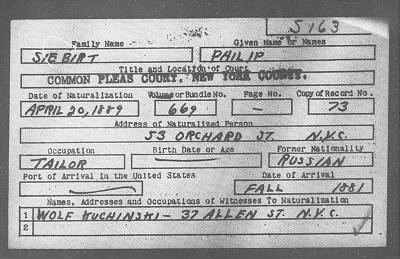 S163
Family Name Given Name or Names
SIEBIRT PHILIP
Title and Location of Court
COMMON PLEAS COURT, NEW YORK COUNTY.
Date of Naturalization Volume or Bundle No. Page No. Copy of Record No.
APRIL 20, 1889 669 - 73
Address of Naturalized Person
53 ORCHARD ST. N.Y.C.
Occupation Birth Date or Age Former Nationality
TAILOR RUSSIAN
Port of Arrival in the United States Date of Arrival
FALL 1881
Names, Addresses and Occupations of Witnesses To Naturalization
1 WOLF KUCHINSKI - 37 ALLEN ST. N.Y.C.
2